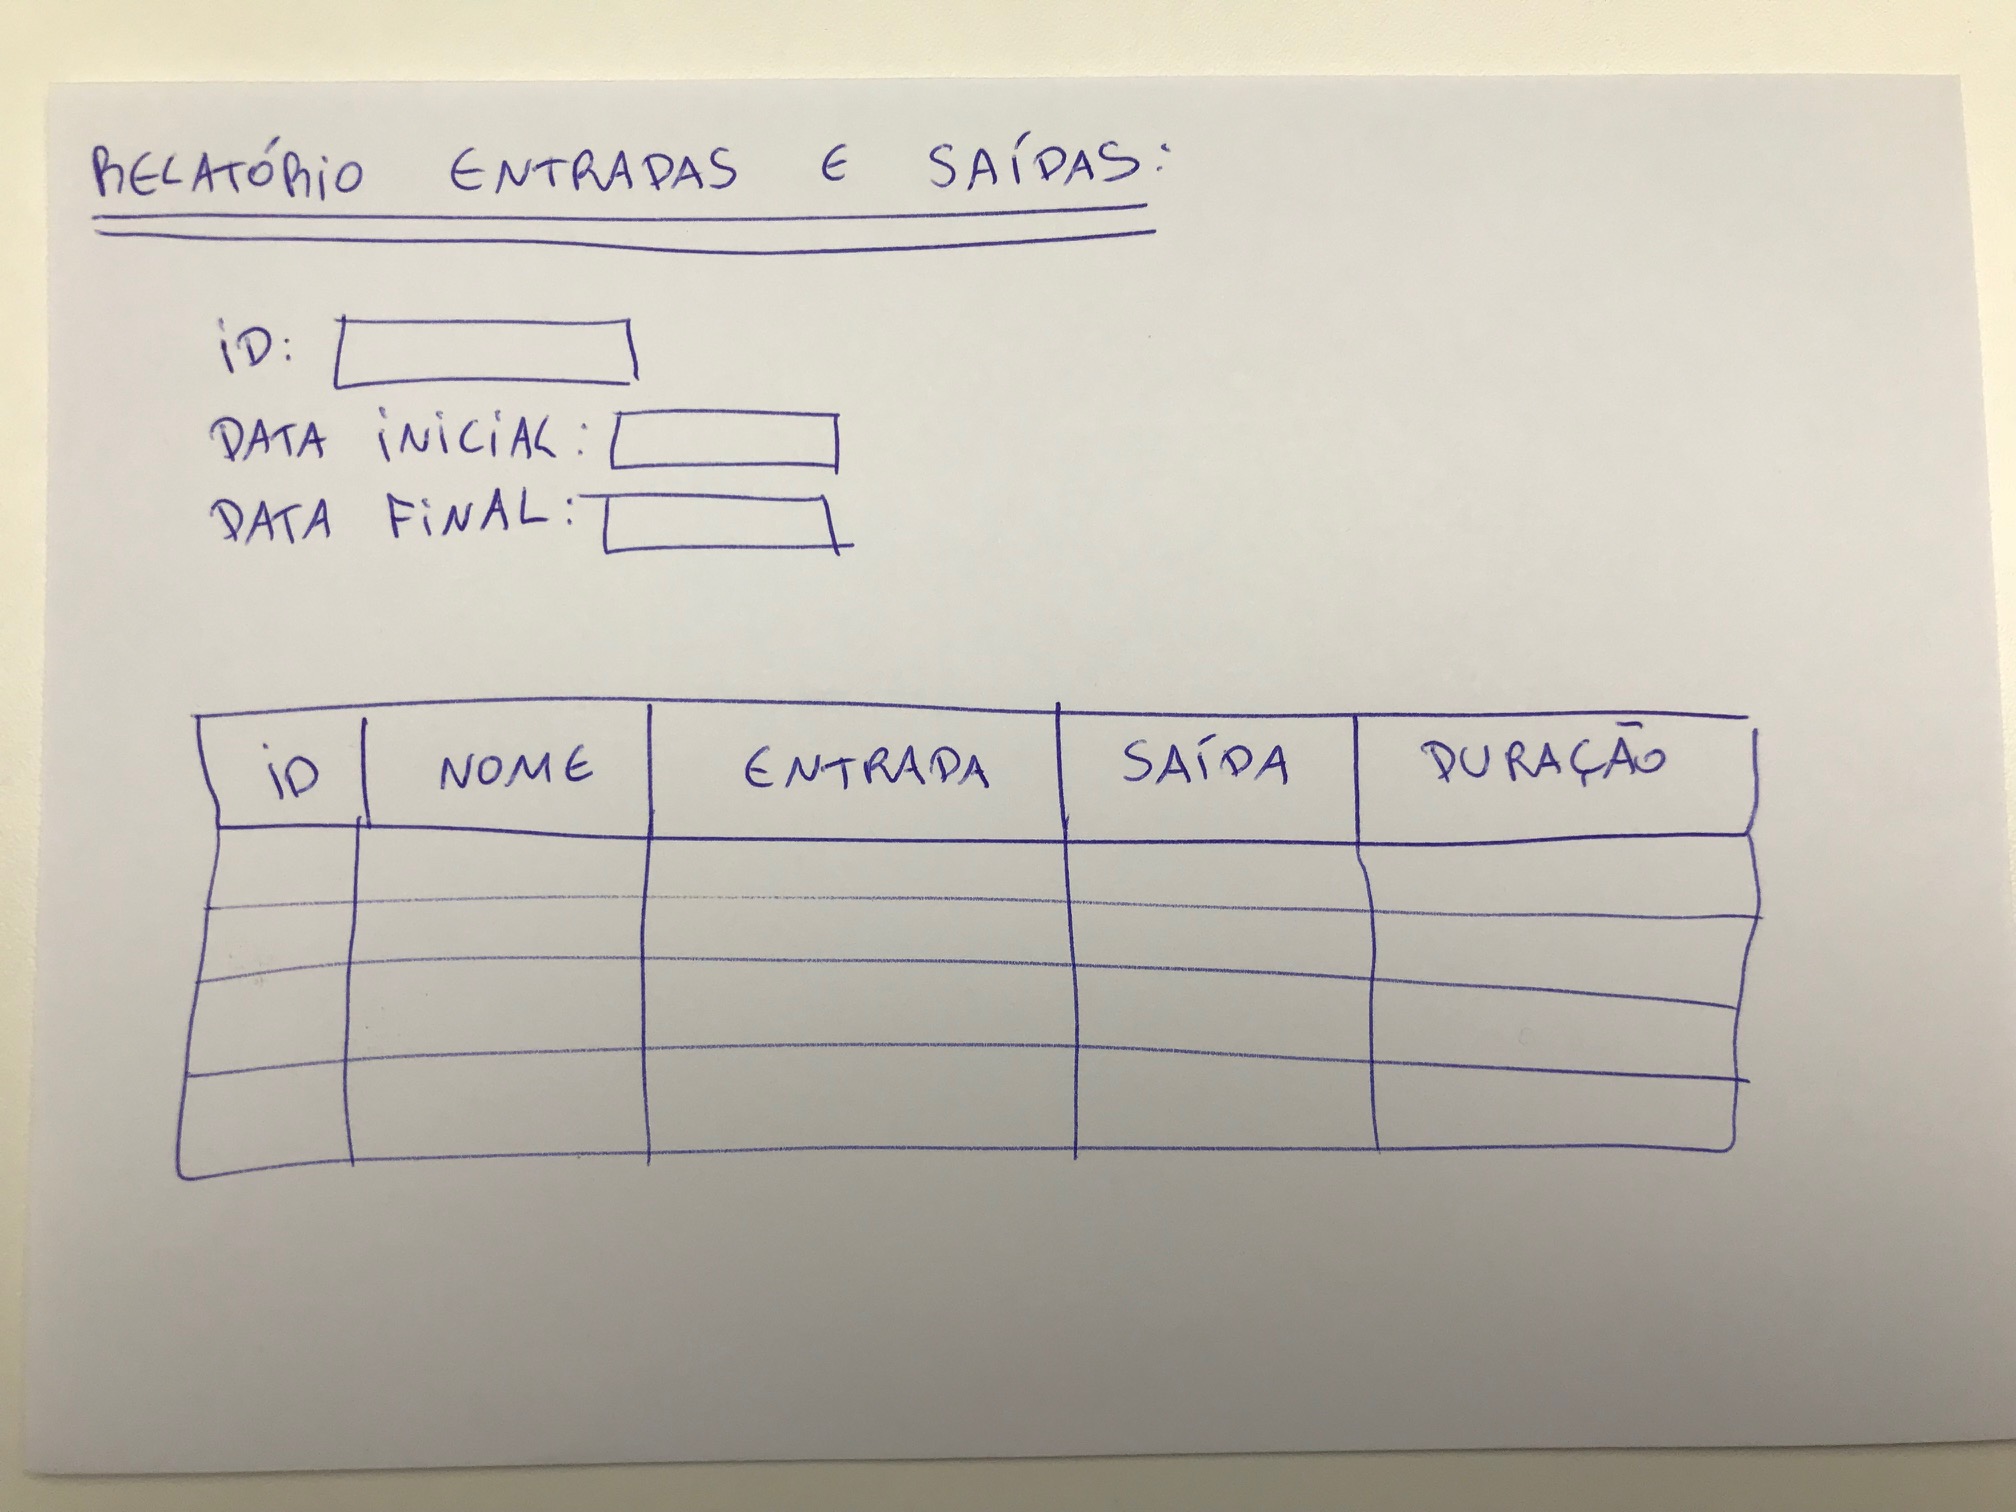 RELATÓRIO ENTRADAS E SAÍDAS:
ID:
DATA INICIAL:
DATA FINAL:
ID NOME ENTRADA SAÍDA DURAÇÃO